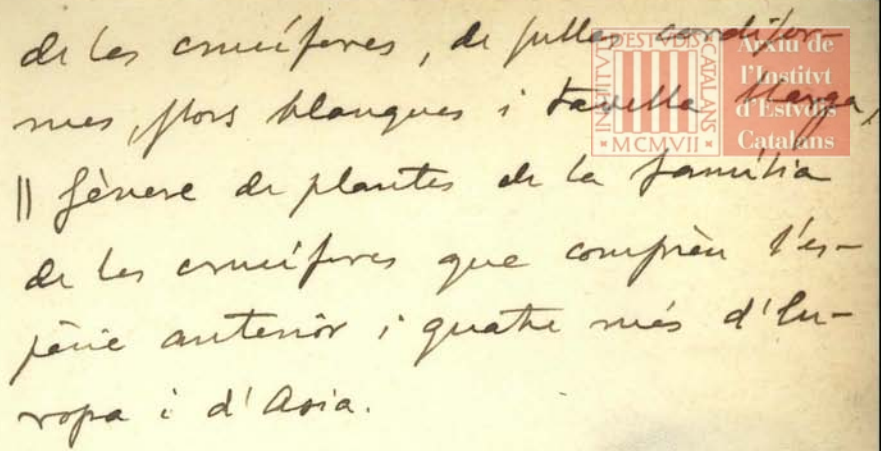 de les crucíferes, de fulles cordifor-
mes, flors blanques i tavella llarga,
|| Gènere de plantes de la família
de les crucíferes que comprèn l'es-
pècie anterior i quatre més d'Eu-
ropa i d'Asia.
INSTITVT D'ESTVDIS CATALANS
MCMVII
Arxiu de
l'Institvt
d'Estvdis
Catalans